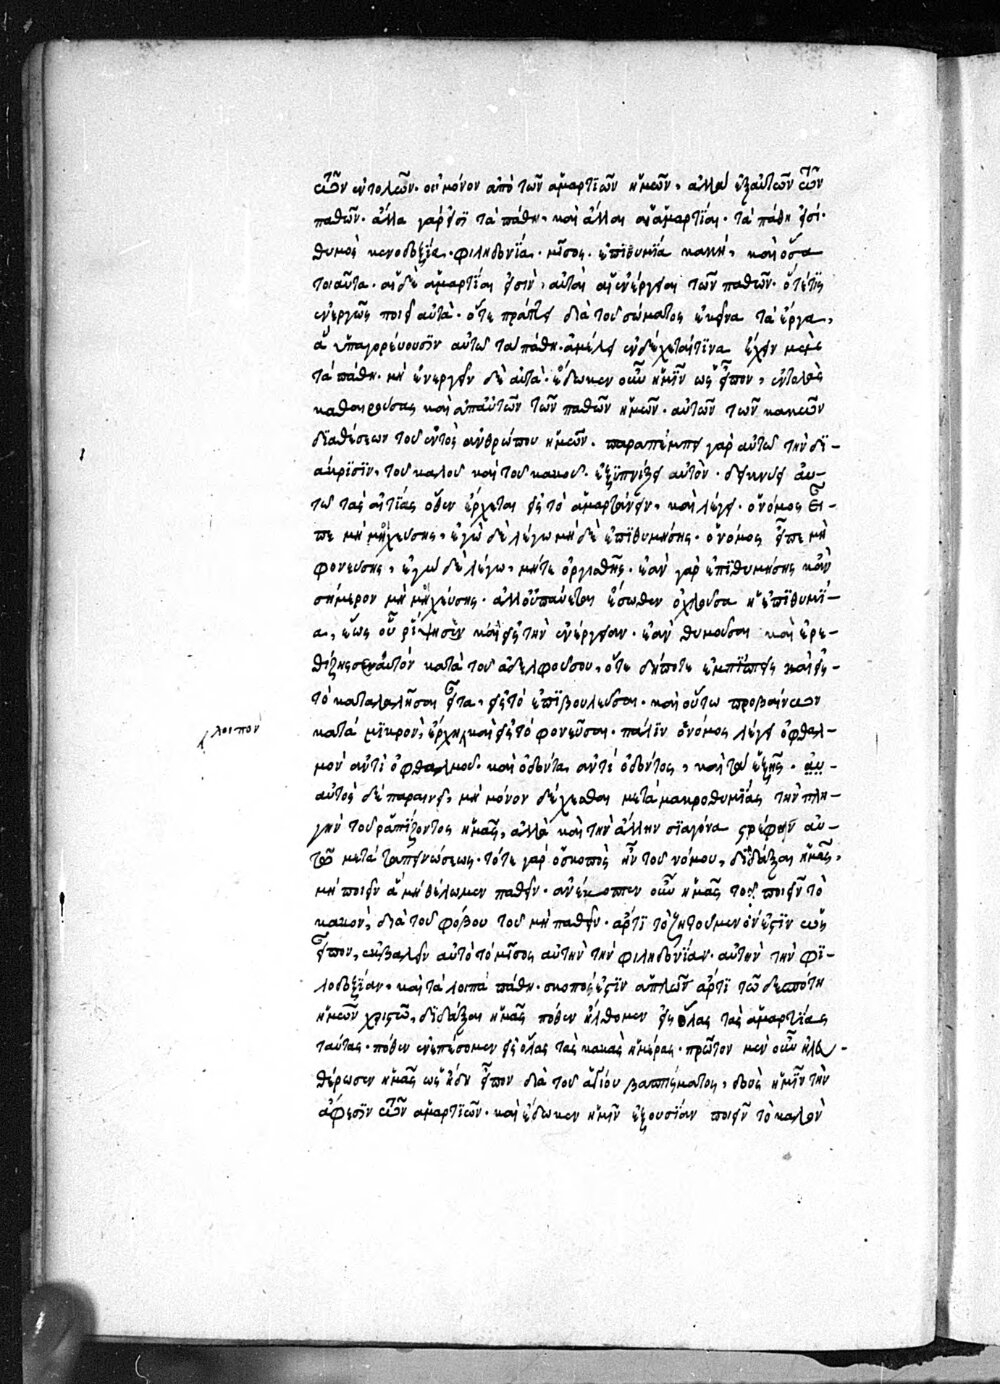 τῶν ἐντολῶν· οὐ μόνον ἀπὸ τῶν ἁμαρτιῶν ἡμῶν, ἀλλὰ ἐξ αὐτῶν τῶν
παθῶν· ἄλλα γάρ εἰσϊ τὰ πάθη, καὶ ἄλλαι αἱ ἁμαρτίαι· τὰ πάθη εἰσί·
θυμὸς κενοδοξία· φιληδονία· μῖσος· ἐπϊθυμΐα κακὴ, καὶ ὅσα
τοιαῦτα· αἱ δὲ ἁμαρτίαι εἰσὶν, αὐταὶ αἱ ἐνέργειαι τῶν παθῶν· ὅτέ τϊς
ἐνεργῶς ποιεῖ αὐτὰ· ὅτε πράττει διὰ τοῦ σώματος ἐκεῖνα τὰ ἔργα,
ἃ ὑπαγορεύουσϊν αὐτῶ τὰ πάθη· ἀμέλει ἐνδέχεταί τϊνα ἔχειν μὲν
τὰ πάθη· μὴ ἐνεργεῖν δὲ αὐτά· ἔδωκεν οὖν ἡμῖν ὡς εἶπον, ἐντολὰς
καθαιρούσας καὶ ἀπ' αὐτῶν τῶν παθῶν ἡμῶν· αὐτῶν τῶν κακῶν
διαθέσεων τοῦ ἐντὸς ἀνθρώπου ἡμῶν· παραπέμπει γὰρ αὐτῶ τὴν δϊ-
άκρϊσϊν, τοῦ καλοῦ καὶ τοῦ κακοῦ· ἐξϋπνίζει αὐτὸν· δεικνύει αὐ-
τῶ τὰς αἰτίας ὅθεν ἔρχεται εἰς τὸ ἁμαρτάνειν, καὶ λέγει· ὁ νόμος εἶ-
πε μὴ μοιχεύσης, ἐγὼ δὲ λέγω μὴ δὲ ἐπϊθυμήσης· ὁ νόμος εἶπε μὴ
φονεύσης, ἐγὼ δὲ λέγω, μήτε ὀργισθῆς· ἐὰν γὰρ ἐπϊθυμήσης κἂν
σήμερον μὴ μοιχεύσης· ἀλλ' οὐ παύεται ἔσωθεν ὀχλοῦσα ἡ ἐπϊθυμΐ-
α, ἕως οὗ ῥίψη σὲ καὶ εἰς τὴν ἐνέργειαν· ἐὰν θυμοῦσαι καὶ ἐρε-
θίζης σεαυτὸν κατὰ τοῦ ἀδελφοῦ σου, ὅτε δήποτε ἐμπΐπτεις καὶ εἰς
τὸ καταλαλῆσαι εἶτα, εἰς τὸ ἐπϊβουλεῦσαι· καὶ οὕτω προβαίνων
κατὰ μϊκρὸν, ἔρχη καὶ εἰς τὸ φονεῦσαι· πάλϊν ὁ νόμος λέγει ὀφθαλ-
λοιπὸν
μὸν ἀντὶ ὀφθαλμοῦ· καὶ ὀδόντα ἀντὶ ὀδόντος, καὶ τὰ ἑξῆς·
αὐτὸς δὲ παραινεῖ, μὴ μόνον δέχεσθαι μετὰ μακροθυμΐας τὴν πλη-
γὴν τοῦ ῥαπίζοντος ἡμᾶς, ἀλλὰ καὶ τὴν ἄλλην σϊαγόνα στρέφειν αὐ-
τῶ μετὰ ταπεινώσεως· τότε γὰρ ὁ σκοπὸς ἦν τοῦ νόμου, δϊδάξαι ἡμᾶς,
μὴ ποιεῖν ἃ μὴ θέλωμεν παθεῖν· ἀνέκοπτεν οὖν ἡμᾶς τοῦ ποιεῖν τὸ
κακὸν, διὰ τοῦ φόβου τοῦ μὴ παθεῖν· ἄρτϊ τὸ ζητούμενόν ἐστϊν ὡς
εἶπον, ἐκβαλεῖν αὐτὸ τὸ μῖσος αὐτὴν τὴν φιληδονΐαν· αὐτὴν τὴν φϊ-
λοδοξίαν, καὶ τὰ λοιπὰ πάθη· σκοπός ἐστϊν ἁπλῶς ἄρτϊ τῶ δεσπότη
ἡμῶν χριστῶ, δϊδάξαι ἡμᾶς πόθεν ἤλθομεν εἰς ὅλας τὰς ἁμαρτίας
ταύτας· πόθεν ἐνεπέσομεν εἰς ὅλας τὰς κακὰς ἡμέρας· πρῶτον μὲν οὖν ἠλευ-
θέρωσεν ἡμᾶς ὡς ἤδη εἶπον διὰ τοῦ ἁγίου βαπτίσματος, δοὺς ἡμῖν τὴν
ἄφεσϊν τῶν ἁμαρτιῶν· καὶ ἔδωκεν ἡμῖν ἐξουσΐαν ποιεῖν τὸ καλὸν